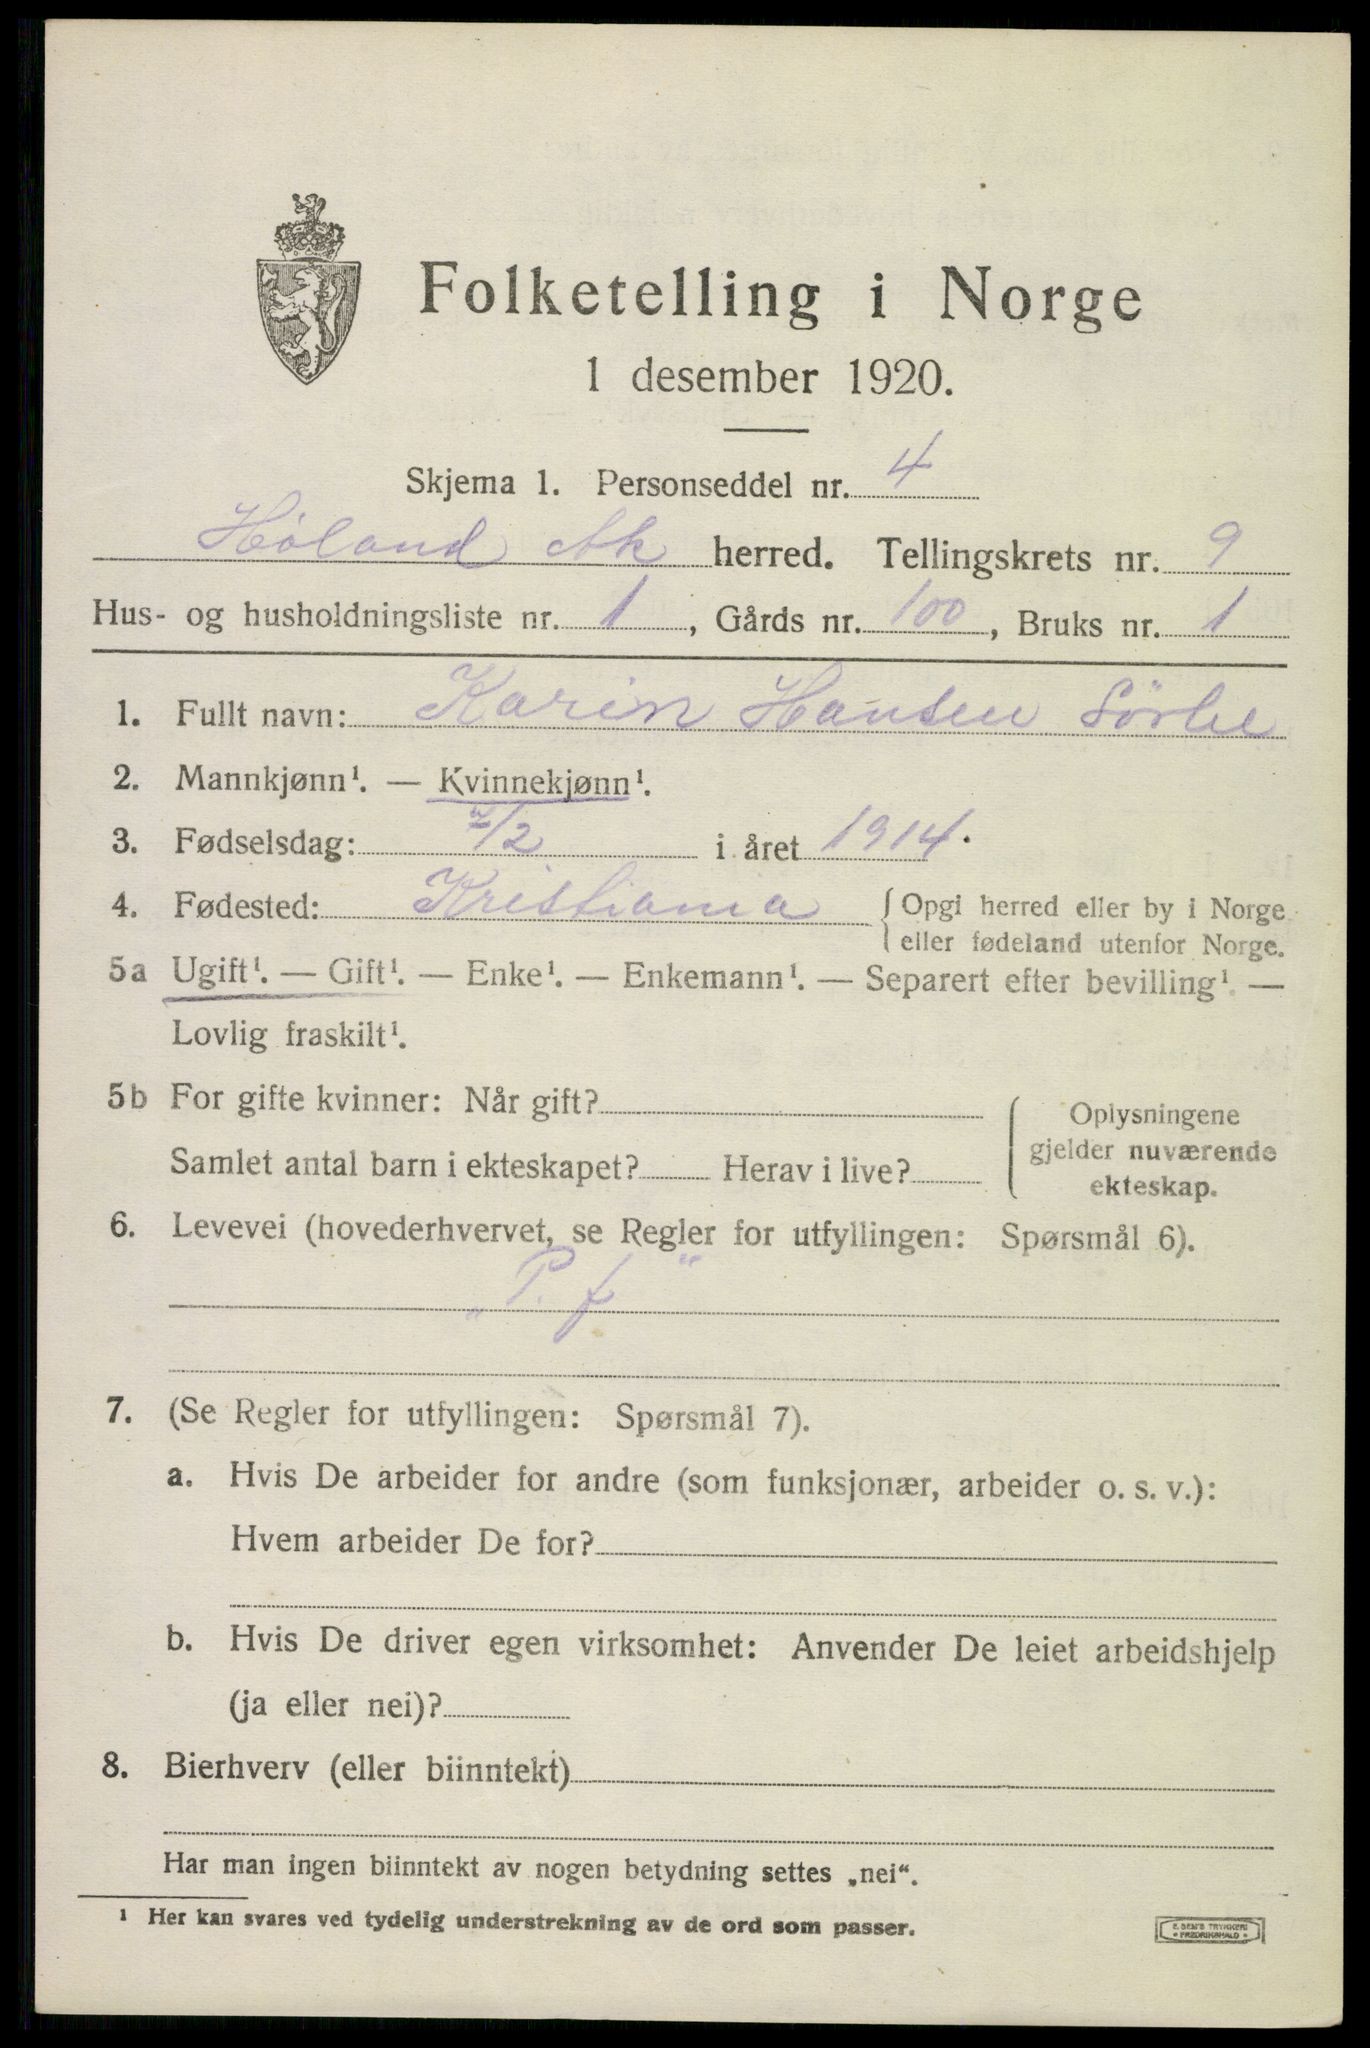 Folketelling i Norge
1 desember 1920.
Skjema 1. Personseddel nr. 4
Höland Ak herred. Tellingskrets nr. 9
Hus- og husholdningsliste nr. 1, Gårds nr. 100, Bruks nr. 1
1. Fullt navn: Karin Hansen Sörbe
2. Mannkjønn¹. — Kvinnekjønn¹.
3. Fødselsdag: /2 i året 1914.
4. Fødested: Kristiania { Opgi herred eller by i Norge
eller fødeland utenfor Norge.
5a Ugift¹. — Gift¹. — Enke¹. — Enkemann¹. — Separert efter bevilling¹. —
Lovlig fraskilt¹.
5b For gifte kvinner: Når gift?
Samlet antal barn i ekteskapet? Herav i live?
Oplysningene
gjelder nuværende
ekteskap.
6. Levevei (hovederhvervet, se Regler for utfyllingen: Spørsmål 6).
„P. f"
7. (Se Regler for utfyllingen: Spørsmål 7).
a. Hvis De arbeider for andre (som funksjonær, arbeider o. s. v.):
Hvem arbeider De for?
b. Hvis De driver egen virksomhet: Anvender De leiet arbeidshjelp
(ja eller nei)?
8. Bierhverv (eller biinntekt)
Har man ingen biinntekt av nogen betydning settes „nei“.
¹ Her kan svares ved tydelig understrekning av de ord som passer.
E. SEM'S TRYKKERI
• FREDRIKSHALD •